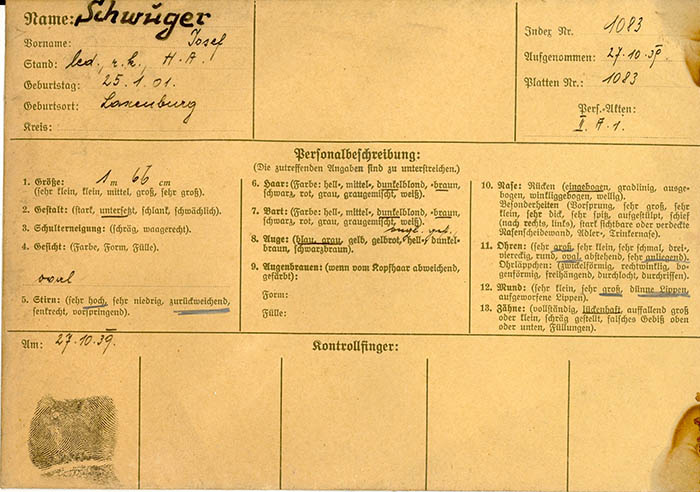 Name: Schwuger
Vorname: Josef
Stand: led., r.k., H.A.
Geburtstag: 25.1.01.
Geburtsort: Laxenburg
Kreis:
Index Nr. 1083
Aufgenommen: 27.10.39.
Platten Nr.: 1083
Pers.-Akten:
II. A. 1.
Personalbeschreibung:
(Die zutreffenden Angaben sind zu unterstreichen.)
1. Größe: 1 m 66 cm
(sehr klein, klein, mittel, groß, sehr groß).
2. Gestalt: (stark, untersetzt, schlank, schwächlich).
3. Schulterneigung: (schräg, waagerecht).
4. Gesicht: (Farbe, Form, Fülle).
oval
5. Stirn: (sehr hoch, sehr niedrig, zurückweichend,
senkrecht, vorspringend).
6. Haar: (Farbe: hell-, mittel-, dunkelblond, -braun,
schwarz, rot, grau, graugemischt, weiß).
7. Bart: (Farbe: hell-, mittel-, dunkelblond, -braun,
schwarz, rot, grau, graugemischt, weiß).
8. Auge: (blau, grau, gelb, gelbrot, hell-, dunkel-
braun, schwarzbraun).
9. Augenbrauen: (wenn vom Kopfhaar abweichend,
gefärbt):
Form:
Fülle:
10. Nase: Rücken (eingebogen, gradlinig, ausge-
bogen, winkliggebogen, wellig).
Besonderheiten (Vorsprung, sehr groß, sehr
klein, sehr dick, sehr spitz, aufgestülpt, schief
(nach rechts, links), stark sichtbare oder verdeckte
Nasenscheidewand, Adler-, Trinkernase).
11. Ohren: (sehr groß, sehr klein, sehr schmal, drei-
viereckig, rund, oval, abstehend, sehr anliegend).
Ohrläppchen: (zwickelförmig, rechtwinklig, bo-
genförmig, freihängend, durchlocht, durchrissen).
12. Mund: (sehr klein, sehr groß, dünne Lippen,
aufgeworfene Lippen).
13. Zähne: (vollständig, lückenhaft, auffallend groß
oder klein, schräg gestellt, falsches Gebiß oben
oder unten, Füllungen).
Am: 27.10.39.
Kontrollfinger: